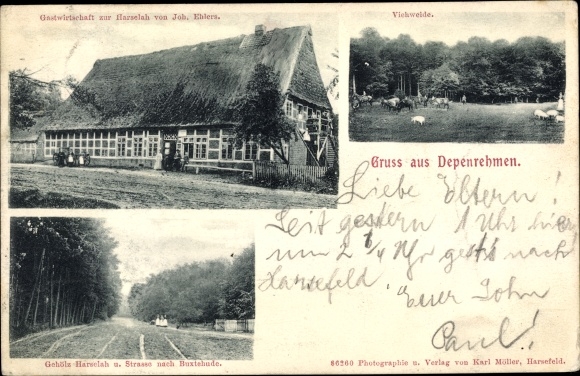 Gastwirtschaft zur Harselah von Joh. Ehlers.
Viehweide.
Gruss aus Depenrehmen.
Liebe Eltern!
Seit gestern 1 Uhr hier
um 2 1/4 Uhr geht's nach
Harsefeld. Euer Sohn
Paul!
Gehölz Harselah u. Strasse nach Buxtehude.
86260 Photographie u. Verlag von Karl Möller, Harsefeld.